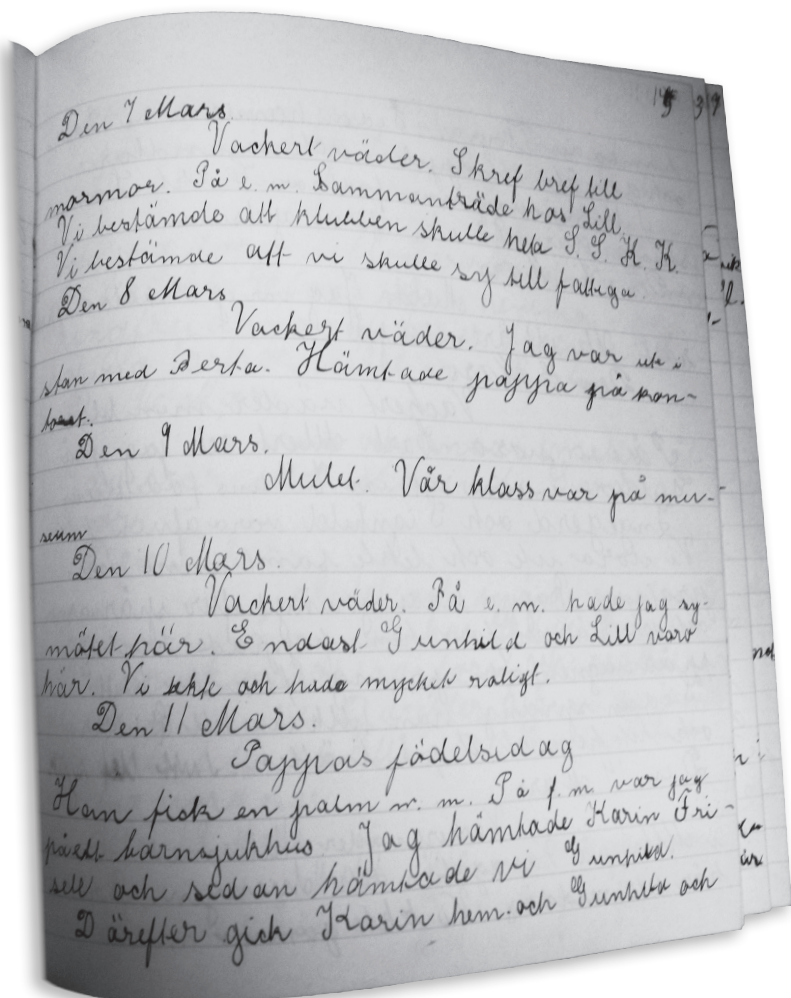 Den 7 Mars.
Vackert väder. Skref bref till
mormor. På e. m. Sammanträde hos Lill.
Vi bestämde att klubben skulle heta S. S. K. K.
Vi bestämde att vi skulle sy till fattiga.
Den 8 Mars
Vackert väder. Jag var ute i
stan med Berta. Hämtade pappa på kon-
toret.
Den 9 Mars.
Mulet. Vår klass var på mu-
seum
Den 10 Mars.
Vackert väder. På e. m. hade jag sy-
mötet här. Endast Gunhild och Lill voro
här. Vi lekte och hade mycket roligt.
Den 11 Mars.
Pappas födelsedag
Han fick en palm m. m. På f. m. var jag
på ett barnsjukhus Jag hämtade Karin Fri-
sell och sedan hämtade vi Gunhild.
Därefter gick Karin hem. och Gunhild och